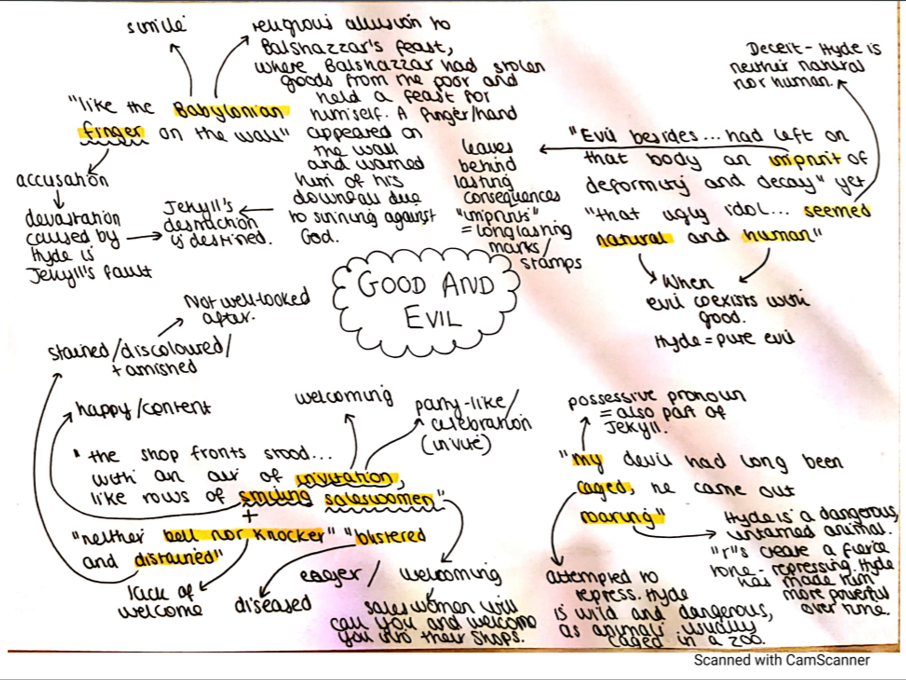 simile
religious allusion to
Balshazzar's feast,
where Balshazzar had stolen
goods from the poor and
held a feast for
himself. A finger/hand
appeared on
the wall
and warned
him of his
downfall due
to sinning against
God.
"like the Babylonian
finger on the wall"
accusation
devastation
caused by
Hyde is
Jekyll's fault
Jekyll's
destruction
is destined.
Deceit - Hyde is
neither natural
nor human.
"Evil besides... had left on
that body an imprint of
deformity and decay" yet
"that ugly idol... seemed
natural and human"
leaves
behind
lasting
consequences
"imprints"
= long lasting
marks/
stamps
When
evil coexists with
good.
Hyde = pure evil
GOOD AND
EVIL
Not well-looked
after.
stained/discoloured/
tarnished
happy/content
welcoming
party-like/
celebration
(invite)
"the shop fronts stood...
with an air of invitation,
like rows of smiling saleswomen"
+
"neither bell nor knocker" "blistered
and distained"
lack of
welcome
diseased
eager / welcoming
saleswomen will
call you and welcome
you into their shops.
possessive pronoun
= also part of
Jekyll.
"My devil had long been
caged, he came out
roaring"
attempted to
repress. Hyde
is wild and dangerous,
as animals usually
caged in a zoo.
Hyde is a dangerous,
untamed animal.
"r"s create a fierce
tone - repressing Hyde
has made him
more powerful
over time.
Scanned with CamScanner